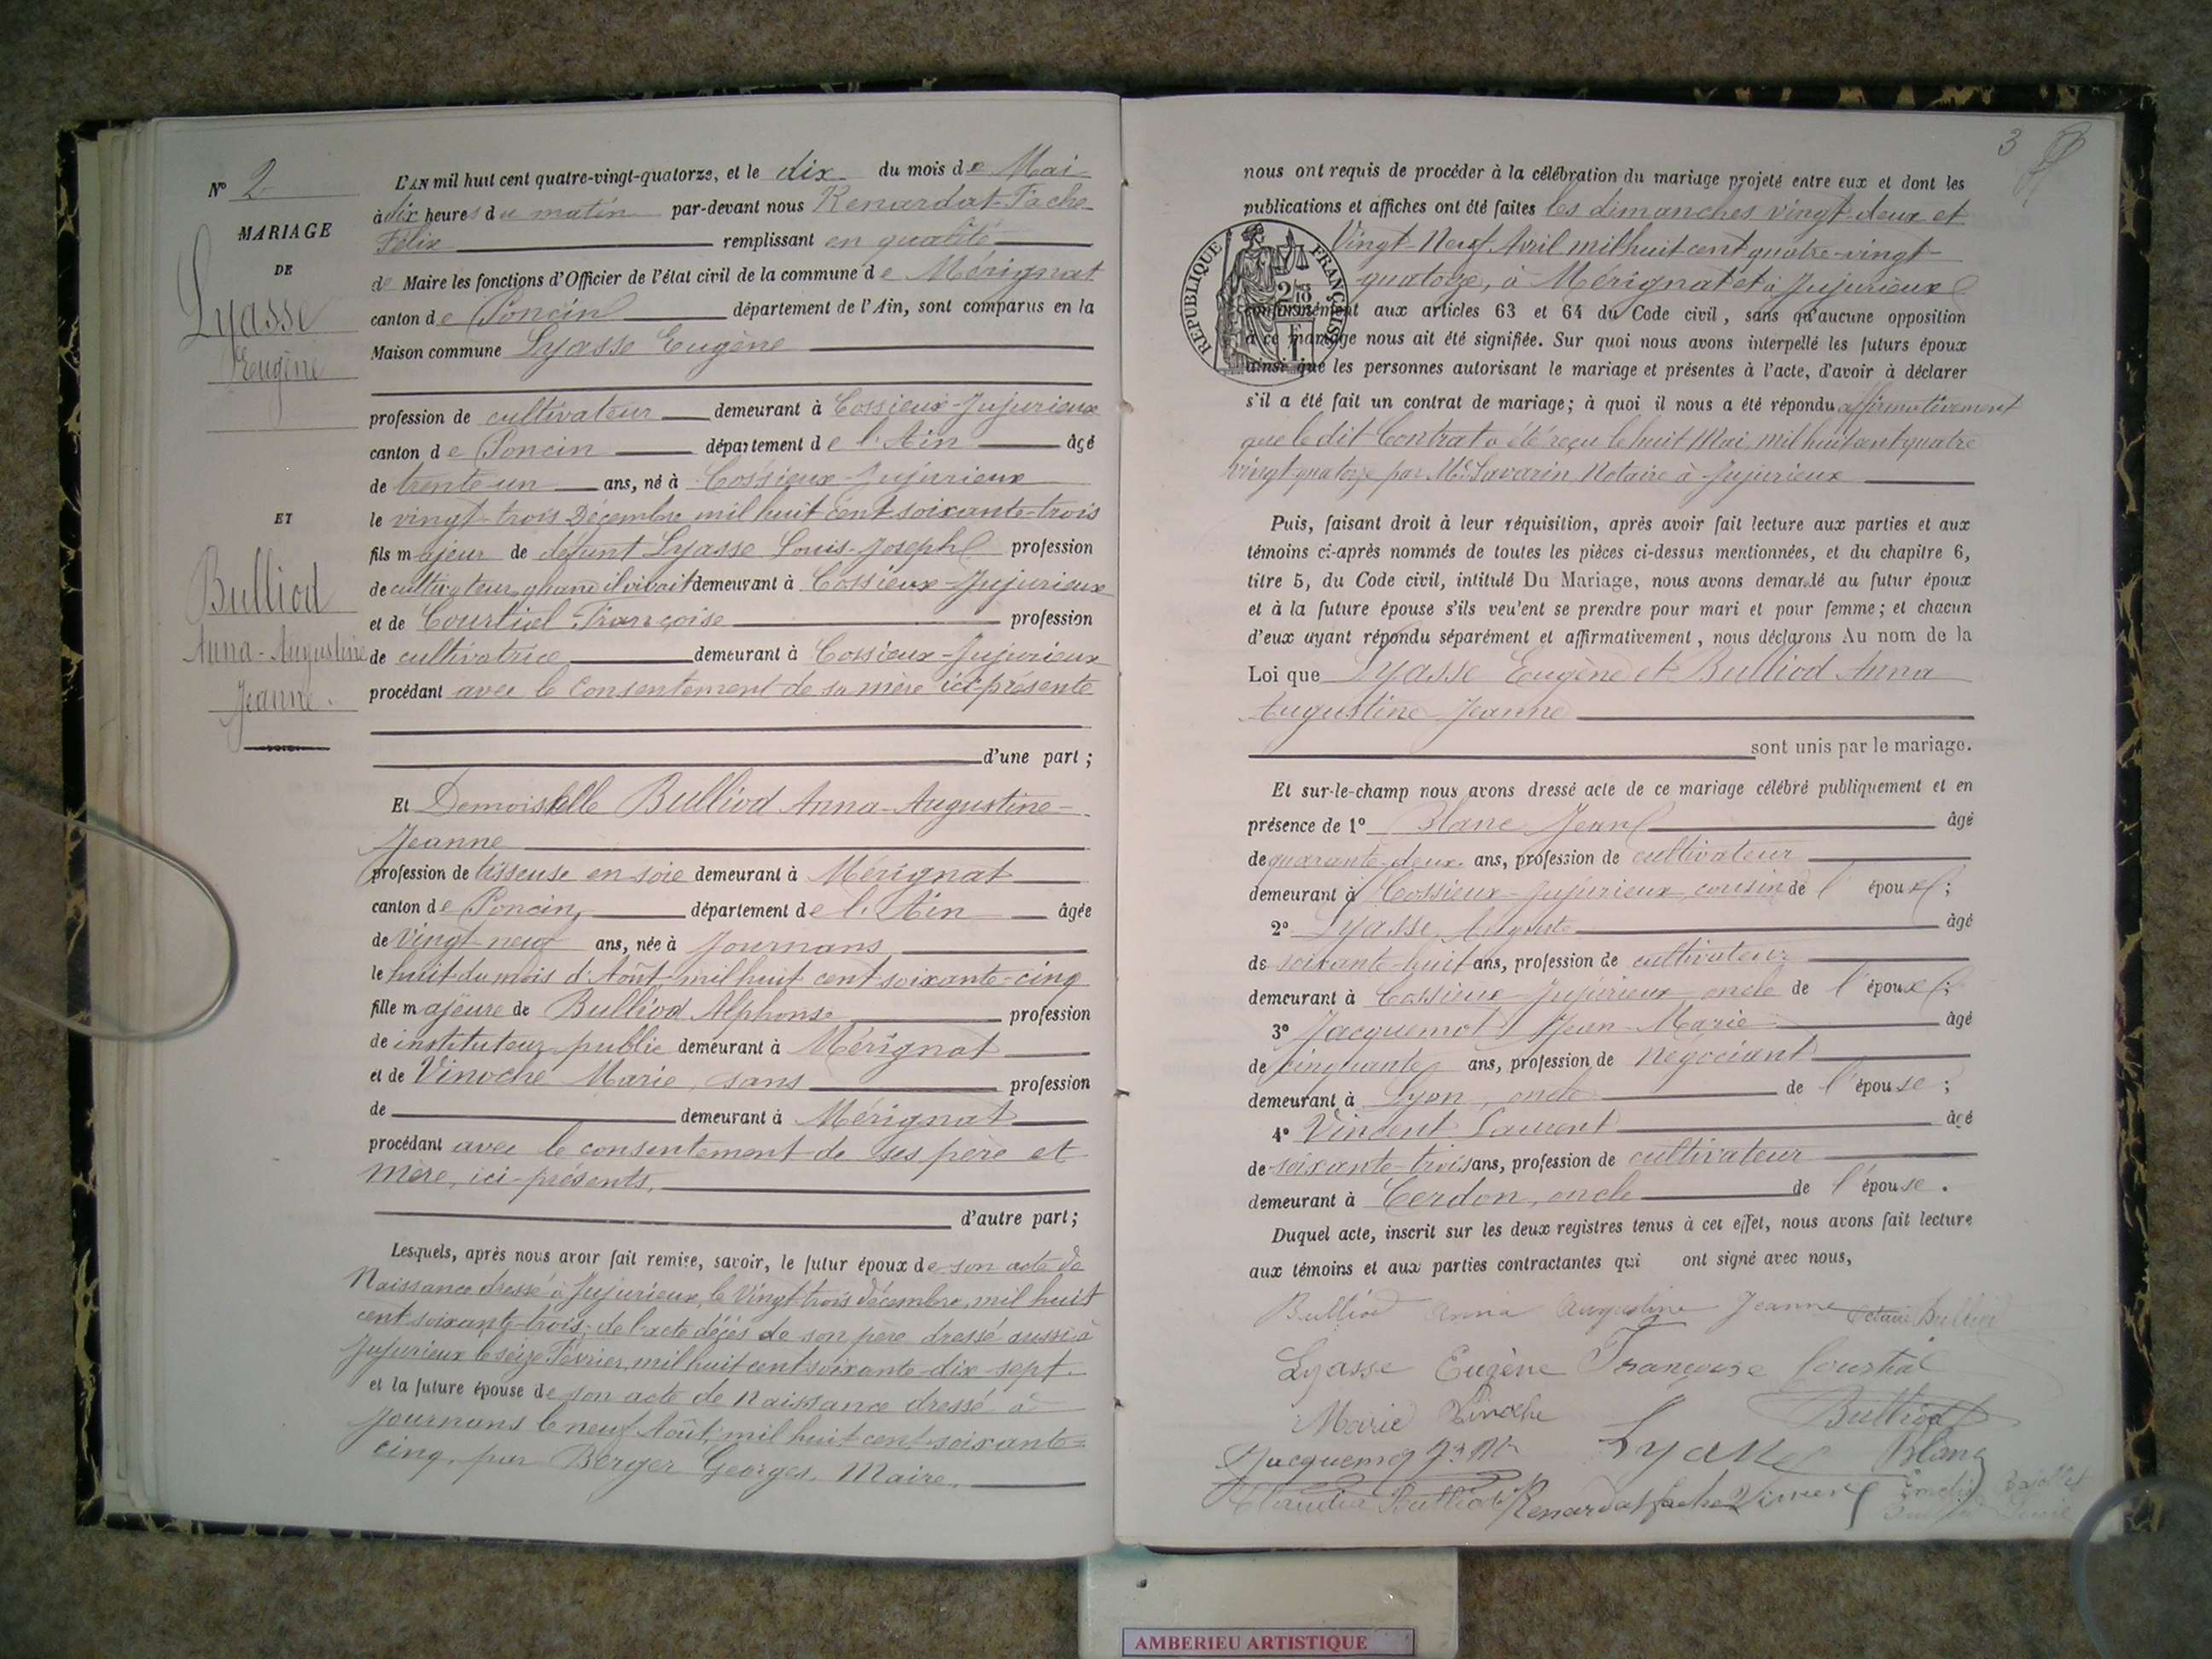 N° 2
MARIAGE
DE
Lyasse
Eugène
ET
Bulliod
Anna-Augustine
Jeanne.
L'AN mil huit cent quatre-vingt-quatorze, et le dix du mois de Mai
à dix heures du matin par-devant nous Renardat-Fache
Félix remplissant en qualité
de Maire les fonctions d'Officier de l'état civil de la commune de Mérignat
canton de Poncin département de l'Ain, sont comparus en la
Maison commune Lyasse Eugène
profession de cultivateur demeurant à Cossieux-Jujurieux
canton de Poncin département de l'Ain âgé
de trente-un ans, né à Cossieux-Jujurieux
le vingt-trois Décembre mil huit cent soixante-trois
fils majeur de défunt Lyasse Louis-Joseph profession
de cultivateur quand il vivait demeurant à Cossieux-Jujurieux
et de Courtial Françoise profession
de cultivatrice demeurant à Cossieux-Jujurieux
procédant avec le consentement de sa mère ici-présente
d'une part ;
Et Demoiselle Bulliod Anna-Augustine-
Jeanne
profession de tisseuse en soie demeurant à Mérignat
canton de Poncin, département de l'Ain âgée
de Vingt-neuf ans, née à Journans
le huit du mois d'Août mil huit cent soixante-cinq
fille majeure de Bulliod Alphonse profession
de instituteur public demeurant à Mérignat
et de Vinoche Marie, sans profession
de demeurant à Mérignat
procédant avec le consentement de ses père et
Mère, ici-présents,
d'autre part ;
Lesquels, après nous avoir fait remise, savoir, le futur époux de son acte de
Naissance dressé à Jujurieux, le Vingt-trois décembre, mil huit
cent soixante-trois; de l'acte décès de son père dressé aussi à
Jujurieux le seize Février, mil huit cent soixante-dix-sept.
et la future épouse de son acte de Naissance dressé à
Journans le neuf Août, mil huit cent soixante-
cinq, par Berger Georges, Maire,
3
nous ont requis de procéder à la célébration du mariage projeté entre eux et dont les
publications et affiches ont été faites les dimanches vingt-deux et
Vingt-Neuf Avril mil huit cent quatre-vingt-
quatorze, à Mérignat et à Jujurieux
RÉPUBLIQUE FRANÇAISE
conformément aux articles 63 et 64 du Code civil, sans qu'aucune opposition
à ce mariage nous ait été signifiée. Sur quoi nous avons interpellé les futurs époux
ainsi que les personnes autorisant le mariage et présentes à l'acte, d'avoir à déclarer
s'il a été fait un contrat de mariage; à quoi il nous a été répondu affirmativement
que le dit Contrat a été reçu le huit Mai, mil huit cent quatre
vingt quatorze par Me Savarin, Notaire à Jujurieux
Puis, faisant droit à leur réquisition, après avoir fait lecture aux parties et aux
témoins ci-après nommés de toutes les pièces ci-dessus mentionnées, et du chapitre 6,
titre 5, du Code civil, intitulé Du Mariage, nous avons demandé au futur époux
et à la future épouse s'ils veu'ent se prendre pour mari et pour femme; et chacun
d'eux ayant répondu séparément et affirmativement, nous déclarons Au nom de la
Loi que Lyasse Eugène et Bulliod Anna
Augustine-Jeanne
sont unis par le mariage.
Et sur-le-champ nous avons dressé acte de ce mariage célébré publiquement et en
présence de 1° Blanc Jean âgé
de quarante-deux ans, profession de cultivateur
demeurant à Cossieux-Jujurieux, cousin de l'époux ;
2° Lyasse, Auguste âgé
de soixante-huit ans, profession de cultivateur
demeurant à Cossieux-Jujurieux oncle de l'époux ;
3° Jacquemot Jean-Marie âgé
de cinquante ans, profession de Négociant
demeurant à Lyon, oncle de l'épouse ;
4° Vincent Laurent âgé
de soixante-trois ans, profession de cultivateur
demeurant à Cerdon, oncle de l'épouse.
Duquel acte, inscrit sur les deux registres tenus à cet effet, nous avons fait lecture
aux témoins et aux parties contractantes qui ont signé avec nous,
Bulliod Anna Augustine Jeanne Bulliod
Lyasse Eugène Françoise Courtial
Marie Vinoche Bulliod
Jacquemot Lyasse Blanc
Claudia Bulliod Renardat fache Vincent
AMBERIEU ARTISTIQUE